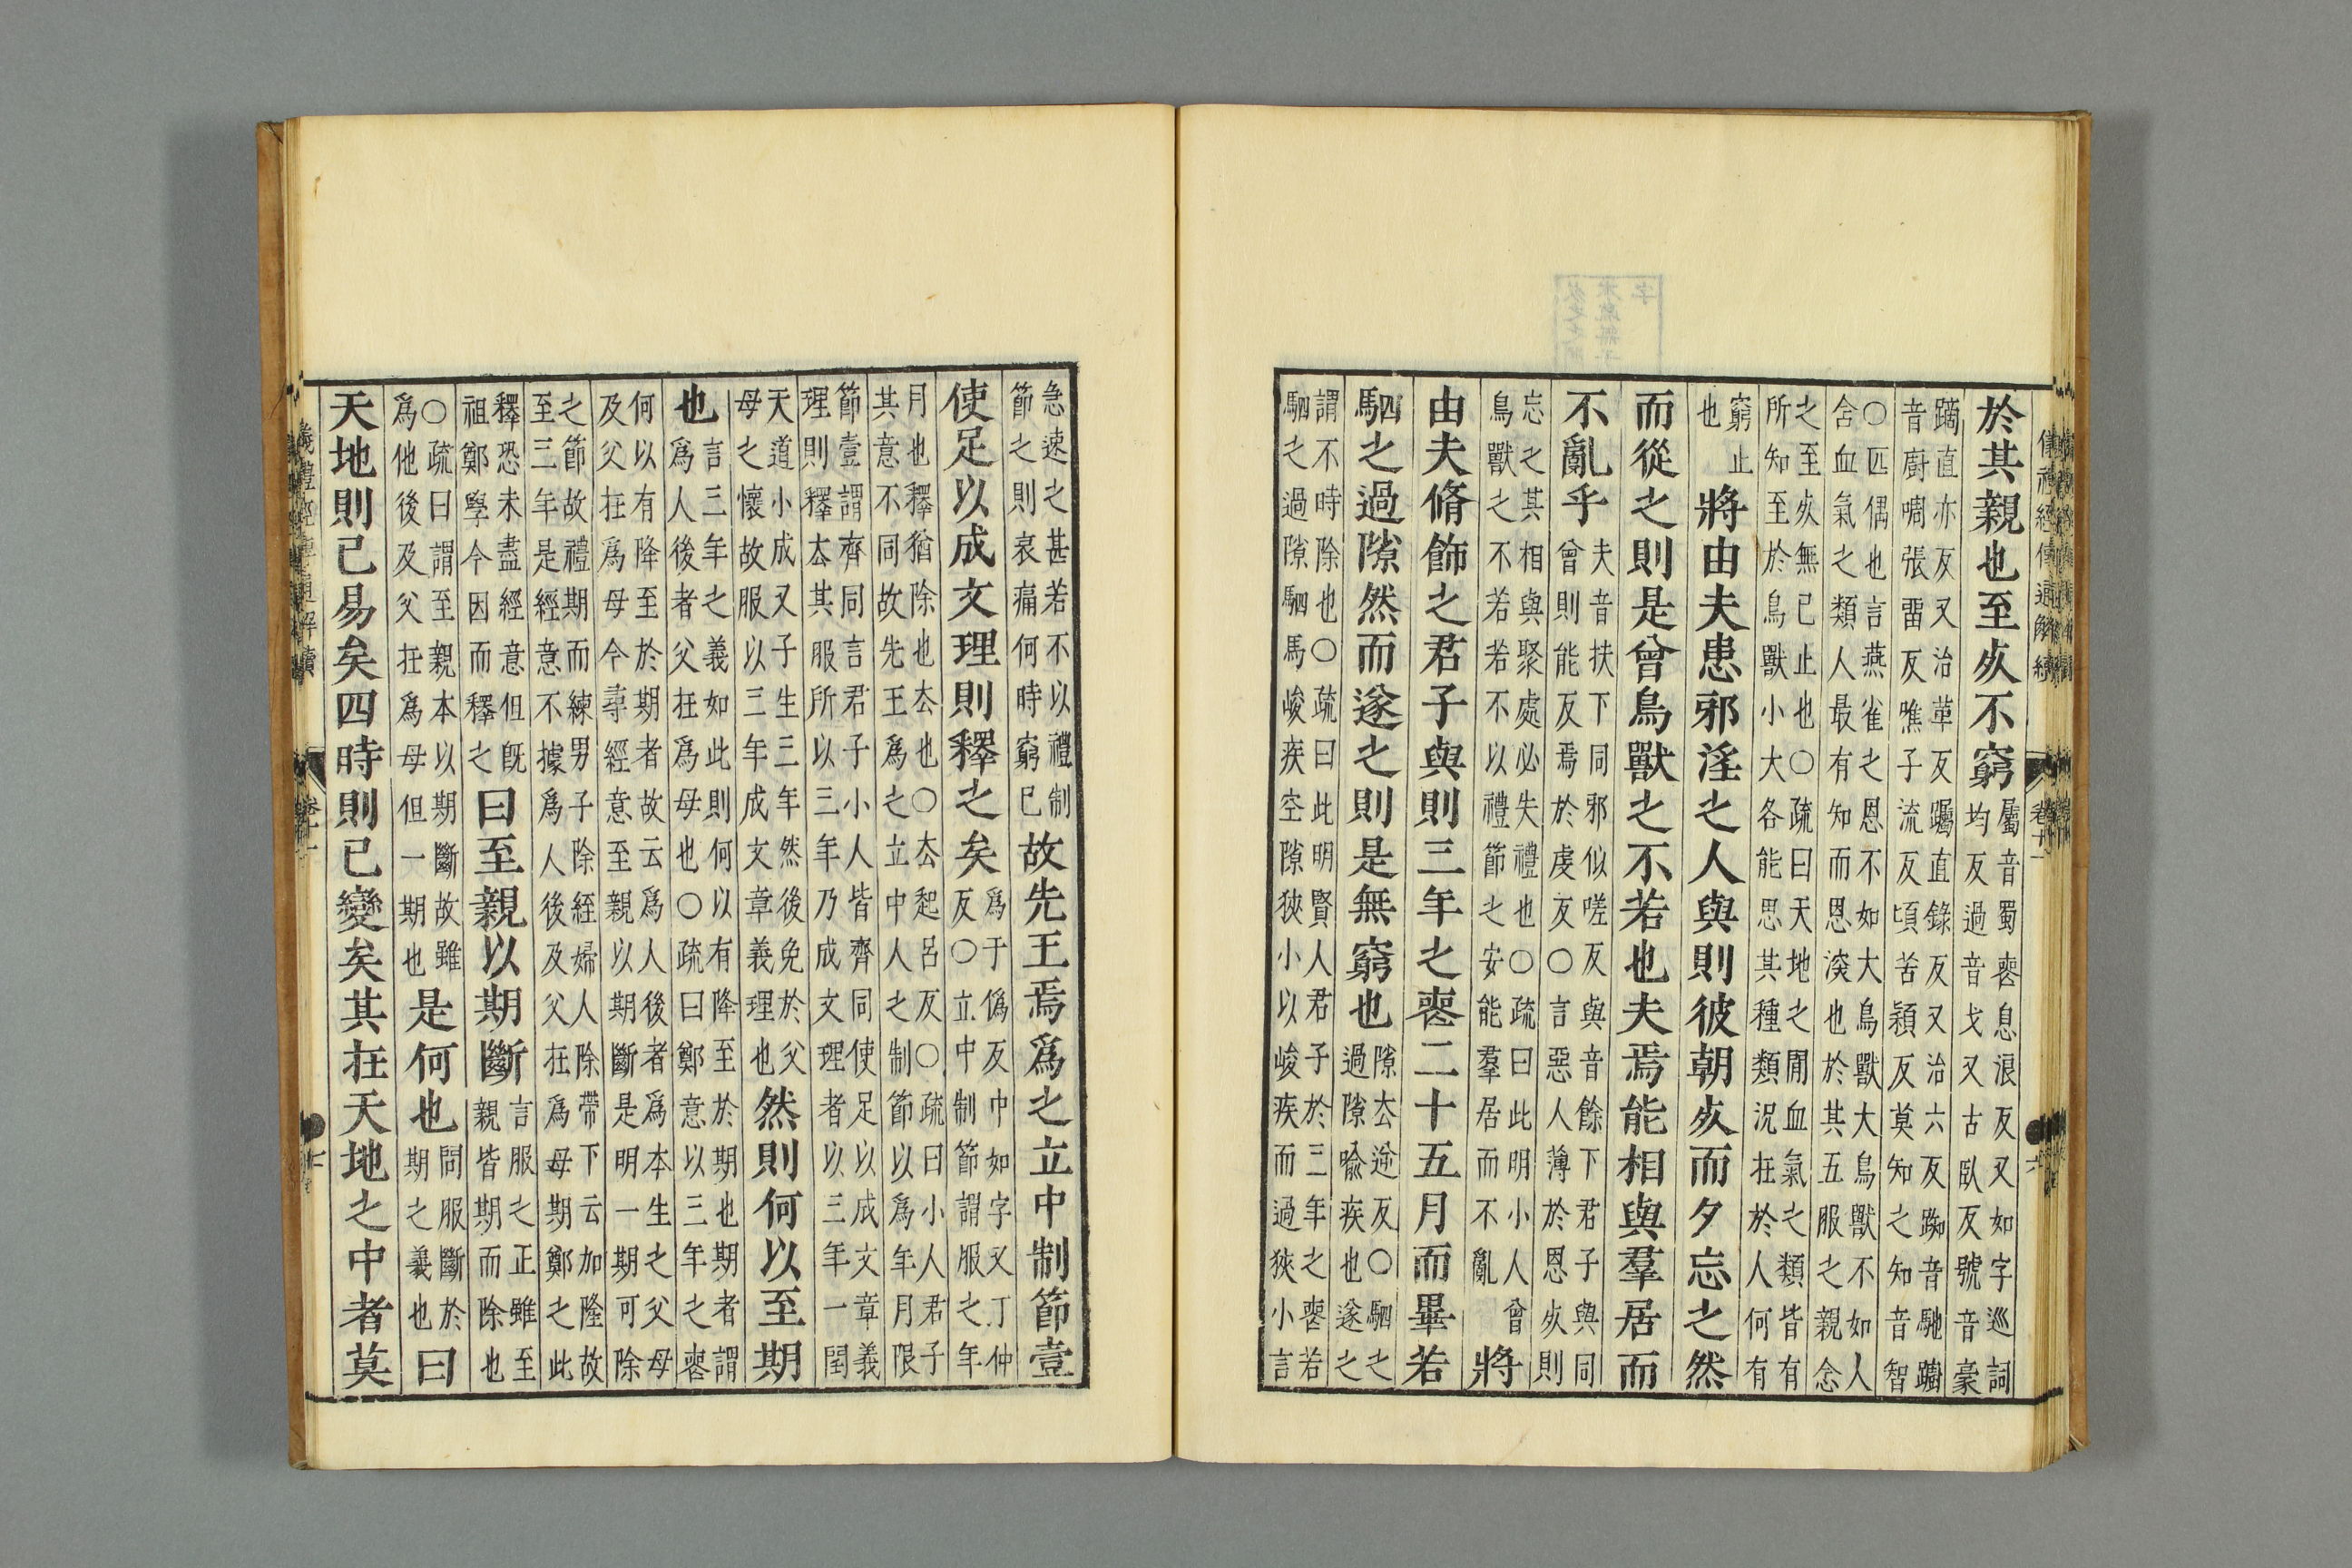 於其親也至死不窮屬音蜀喪息浪反又如字巡詞
均反過音戈又古臥反號音豪
蹢直亦反又治革反躅直錄反又治六反踟音馳躕
音廚啁張留反噍子流反頃苦潁反莫知之知音智
○匹偶也言燕雀之恩不如大鳥獸大鳥獸不如人
含血氣之類人最有知而恩深也於其五服之親念
之至死無已止也○疏曰天地之閒血氣之類皆有
所知至於鳥獸小大各能思其種類況在於人何有
窮止
也
將由夫患邪淫之人與則彼朝死而夕忘之然
而從之則是曾鳥獸之不若也夫焉能相與羣居而
不亂乎夫音扶下同邪似嗟反與音餘下君子與同
曾則能反焉於虔反○言惡人薄於恩死則
忘之其相與聚處必失禮也○疏曰此明小人曾
鳥獸之不若若不以禮節之安能羣居而不亂
將
由夫脩飾之君子與則三年之喪二十五月而畢若
駟之過隙然而遂之則是無窮也隙去逆反○駟之
過隙喻疾也遂之
謂不時除也○疏曰此明賢人君子於三年之喪若
駟之過隙駟馬峻疾空隙狹小以峻疾而過狹小言
急速之甚若不以禮制
節之則哀痛何時窮已
故先王焉爲之立中制節壹
使足以成文理則釋之矣爲于僞反中如字又丁仲
反○立中制節謂服之年
月也釋猶除也去也○去起呂反○疏曰小人君子
其意不同故先王爲之立中人之制節以爲年月限
節壹謂齊同言君子小人皆齊同使足以成文章義
理則釋去其服所以三年乃成文理者以三年一閏
天道小成又子生三年然後免於父
母之懷故服以三年成文章義理也
然則何以至期
也言三年之義如此則何以有降至於期也期者謂
爲人後者父在爲母也○疏曰鄭意以三年之喪
何以有降至於期者故云爲人後者爲本生之父母
及父在爲母今尋經意至親以期斷是明一期可除
之節故禮期而練男子除絰婦人除帶下云加隆故
至三年是經意不據爲人後及父在爲母期鄭之此
釋恐未盡經意但旣
祖鄭學今因而釋之
曰至親以期斷言服之正雖至
親皆期而除也
○疏曰謂至親本以期斷故雖
爲他後及父在爲母但一期也
是何也問服斷於
期之義也
曰
天地則已易矣四時則已變矣其在天地之中者莫